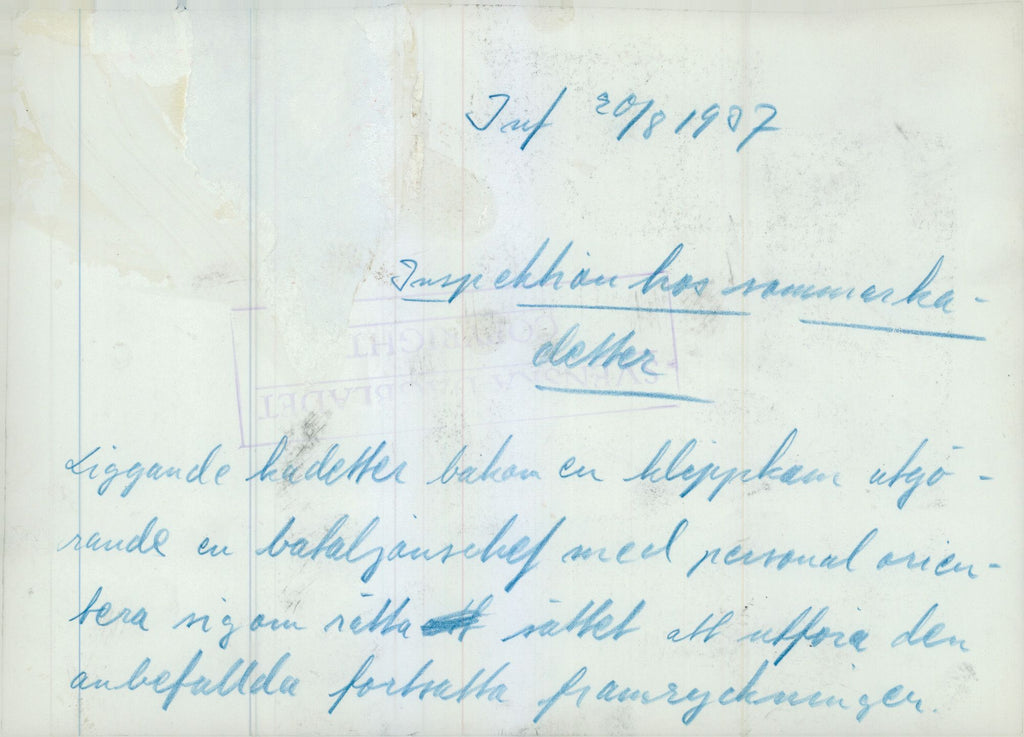 Inf 20/8 1937
Inspektion hos sommarka-
detter
COPYRIGHT
SVENSKA DAGBLADET
Liggande kadetter bakom en klippkam utgö-
rande en bataljonschef med personal orien-
tera sig om rätta sättet att utföra den
anbefallda fortsatta framryckningen.